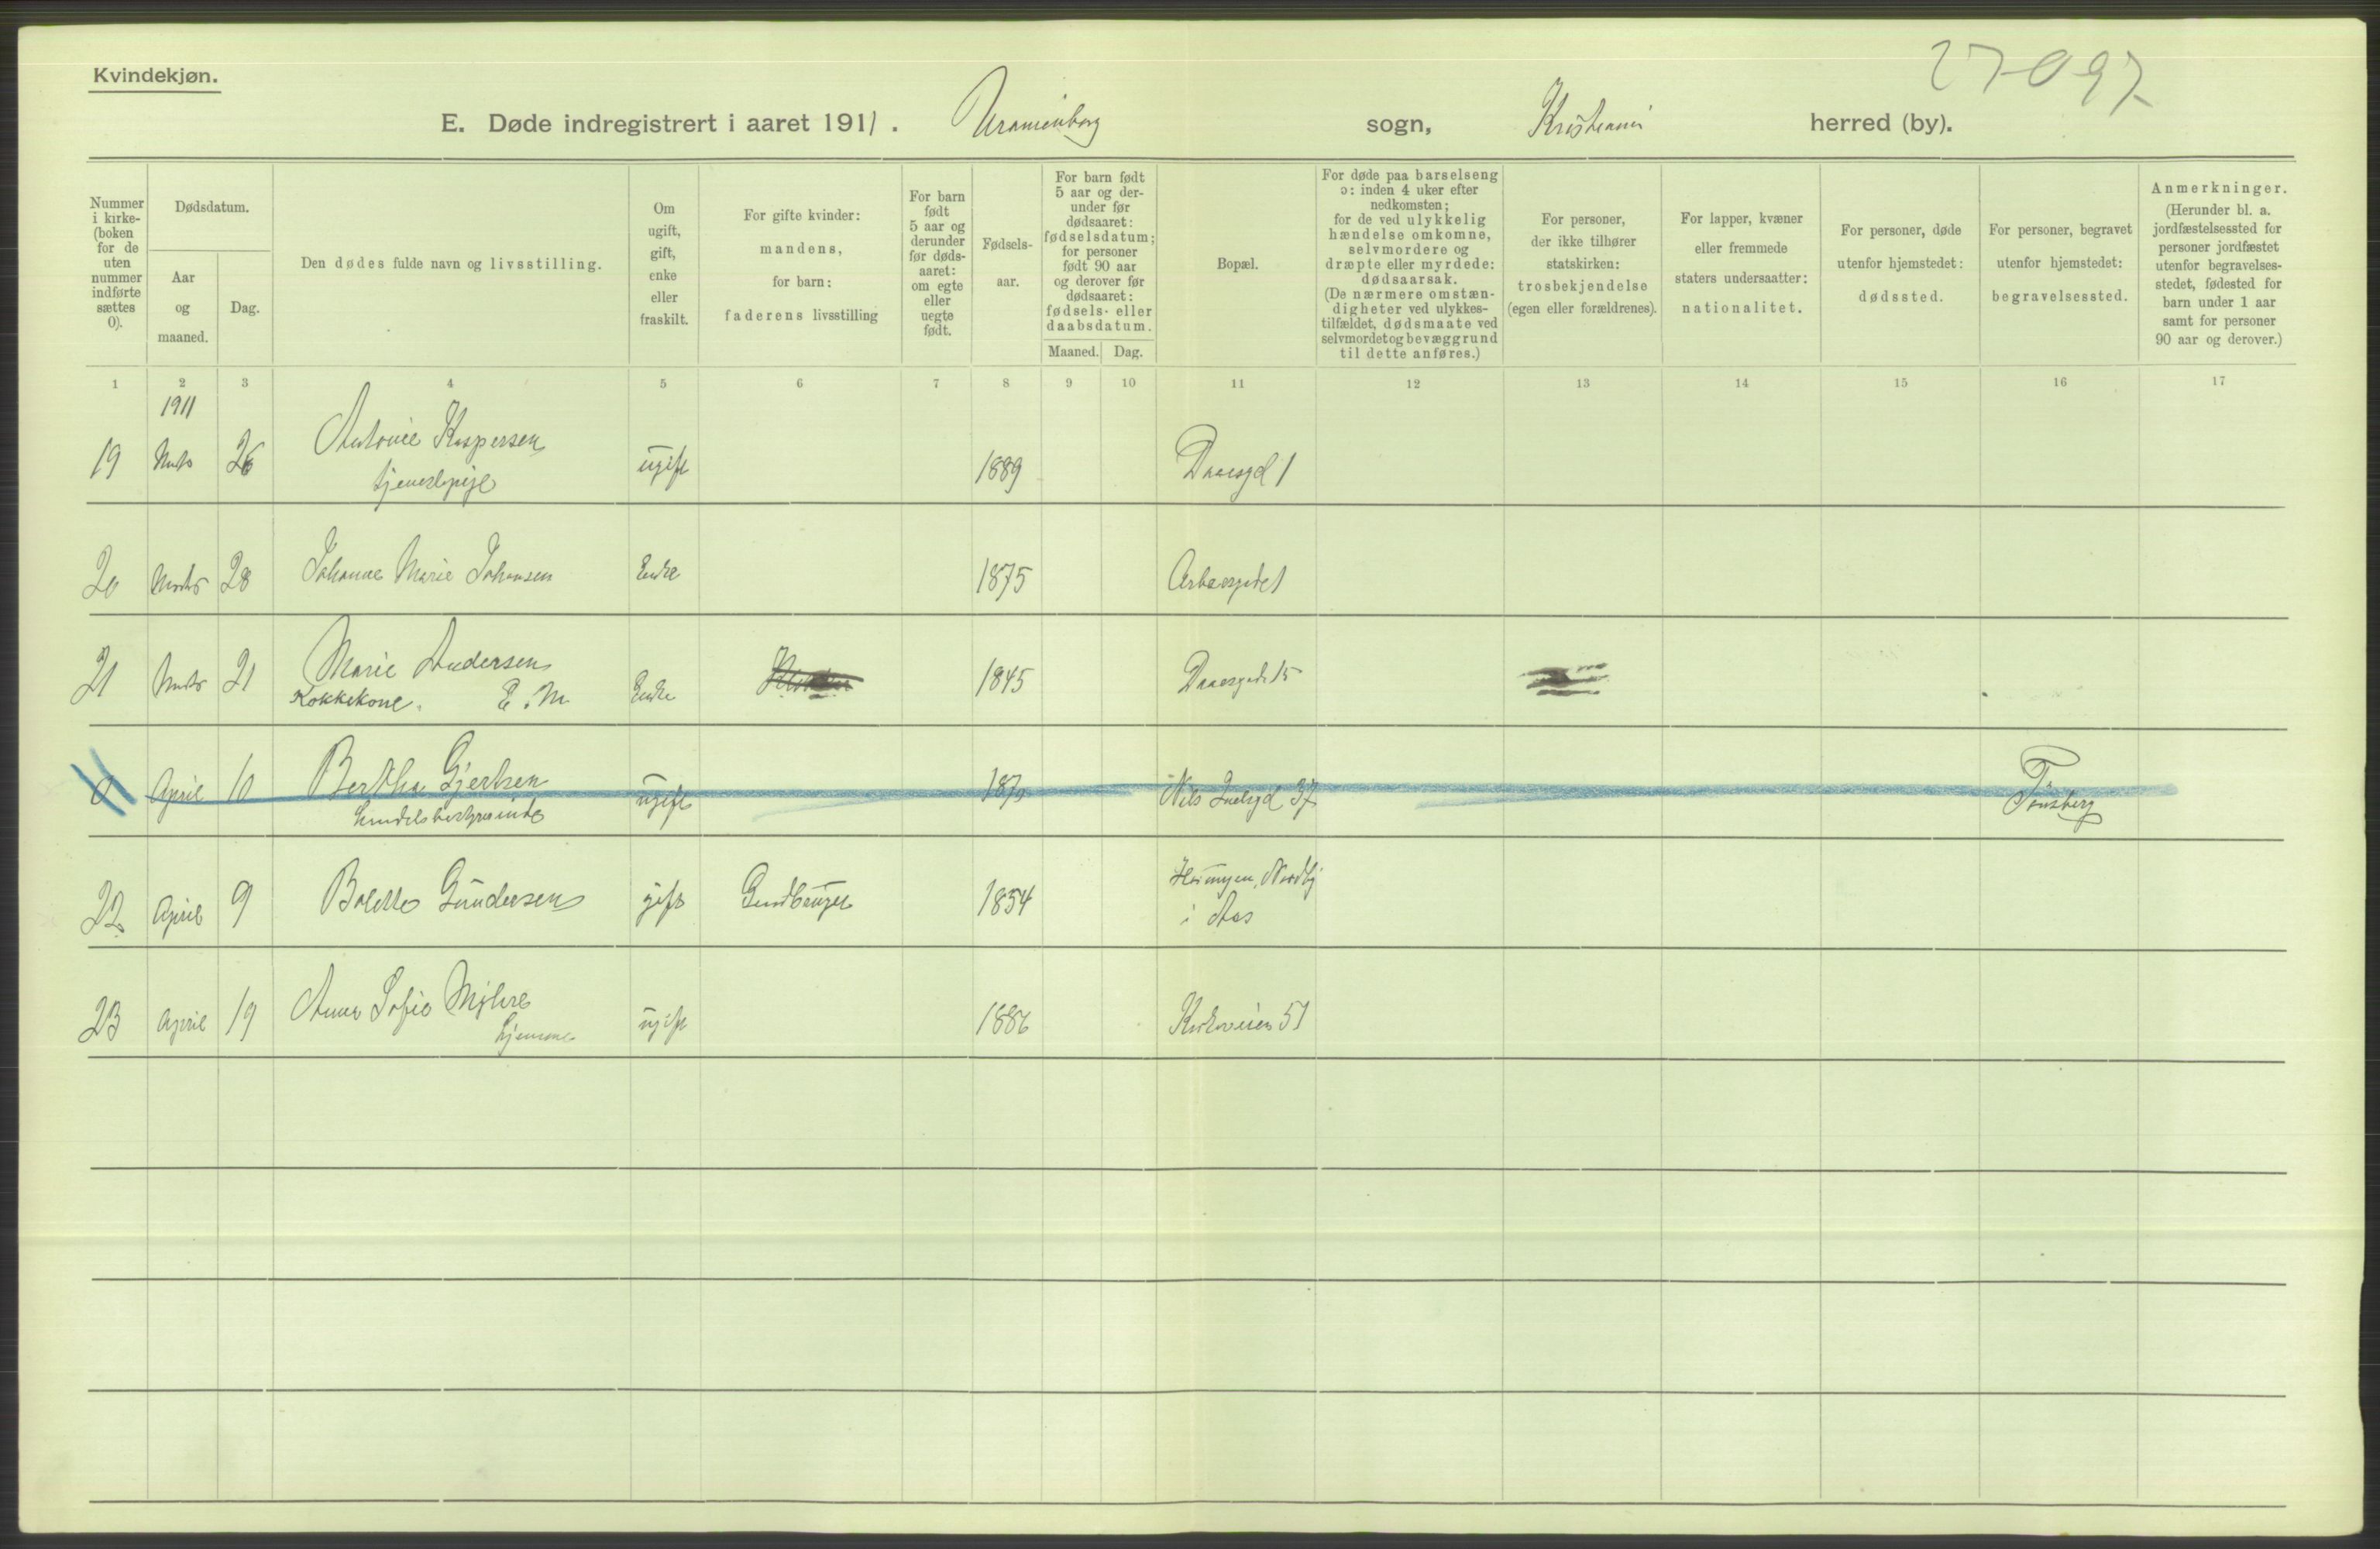 Kvindekjøn.
27097
E. Døde indregistrert i aaret 1911. Uranienborg sogn, Kristiania herred (by).
Nummer i kirke-(boken for de uten nummer indførte sættes 0).
Dødsdatum.
Aar og maaned.
Dag.
Den dødes fulde navn og livsstilling.
Om ugift, gift, enke eller fraskilt.
For gifte kvinder: mandens, for barn: faderens livsstilling
For barn født 5 aar og derunder før døds-aaret: om egte eller uegte født.
Fødsels-aar.
For barn født 5 aar og der-under før dødsaaret: fødselsdatum; for personer født 90 aar og derover før dødsaaret: fødsels- eller daabsdatum.
Maaned. Dag.
Bopæl.
For døde paa barselseng ɔ: inden 4 uker efter nedkomsten; for de ved ulykkelig hændelse omkomne, selvmordere og dræpte eller myrdede: dødsaarsak. (De nærmere omstæn-digheter ved ulykkes-tilfældet, dødsmaate ved selvmordet og bevæggrund til dette anføres.)
For personer, der ikke tilhører statskirken: trosbekjendelse (egen eller forældrenes).
For lapper, kvæner eller fremmede staters undersaatter: nationalitet.
For personer, døde utenfor hjemstedet: dødssted.
For personer, begravet utenfor hjemstedet: begravelsessted.
Anmerkninger. (Herunder bl. a. jordfæstelsessted for personer jordfæstet utenfor begravelses-stedet, fødested for barn under 1 aar samt for personer 90 aar og derover.)
1 2 3 4 5 6 7 8 9 10 11 12 13 14 15 16 17
1911
19 Marts 26 Antonie Kaspersen ugift 1889 Daaesgd 1
tjenestepige
20 Marts 28 Johanne Marie Johansen Enke 1875
21 Marts 21 Marie Andersen Enke 1845 Daaesgade 15
Kokkekone. E. M.
0 April 10 Bertha Gjertsen ugift Nils Juelsgd 37 Tönsberg
Handelsbestyrerinde
22 April 9 Bolette Gundersen gift Gaardbruger 1854 Nordby
i Aas
23 April 19 Anna Sofie Myhre ugift 1886 Kirkeveien 51
hjemme